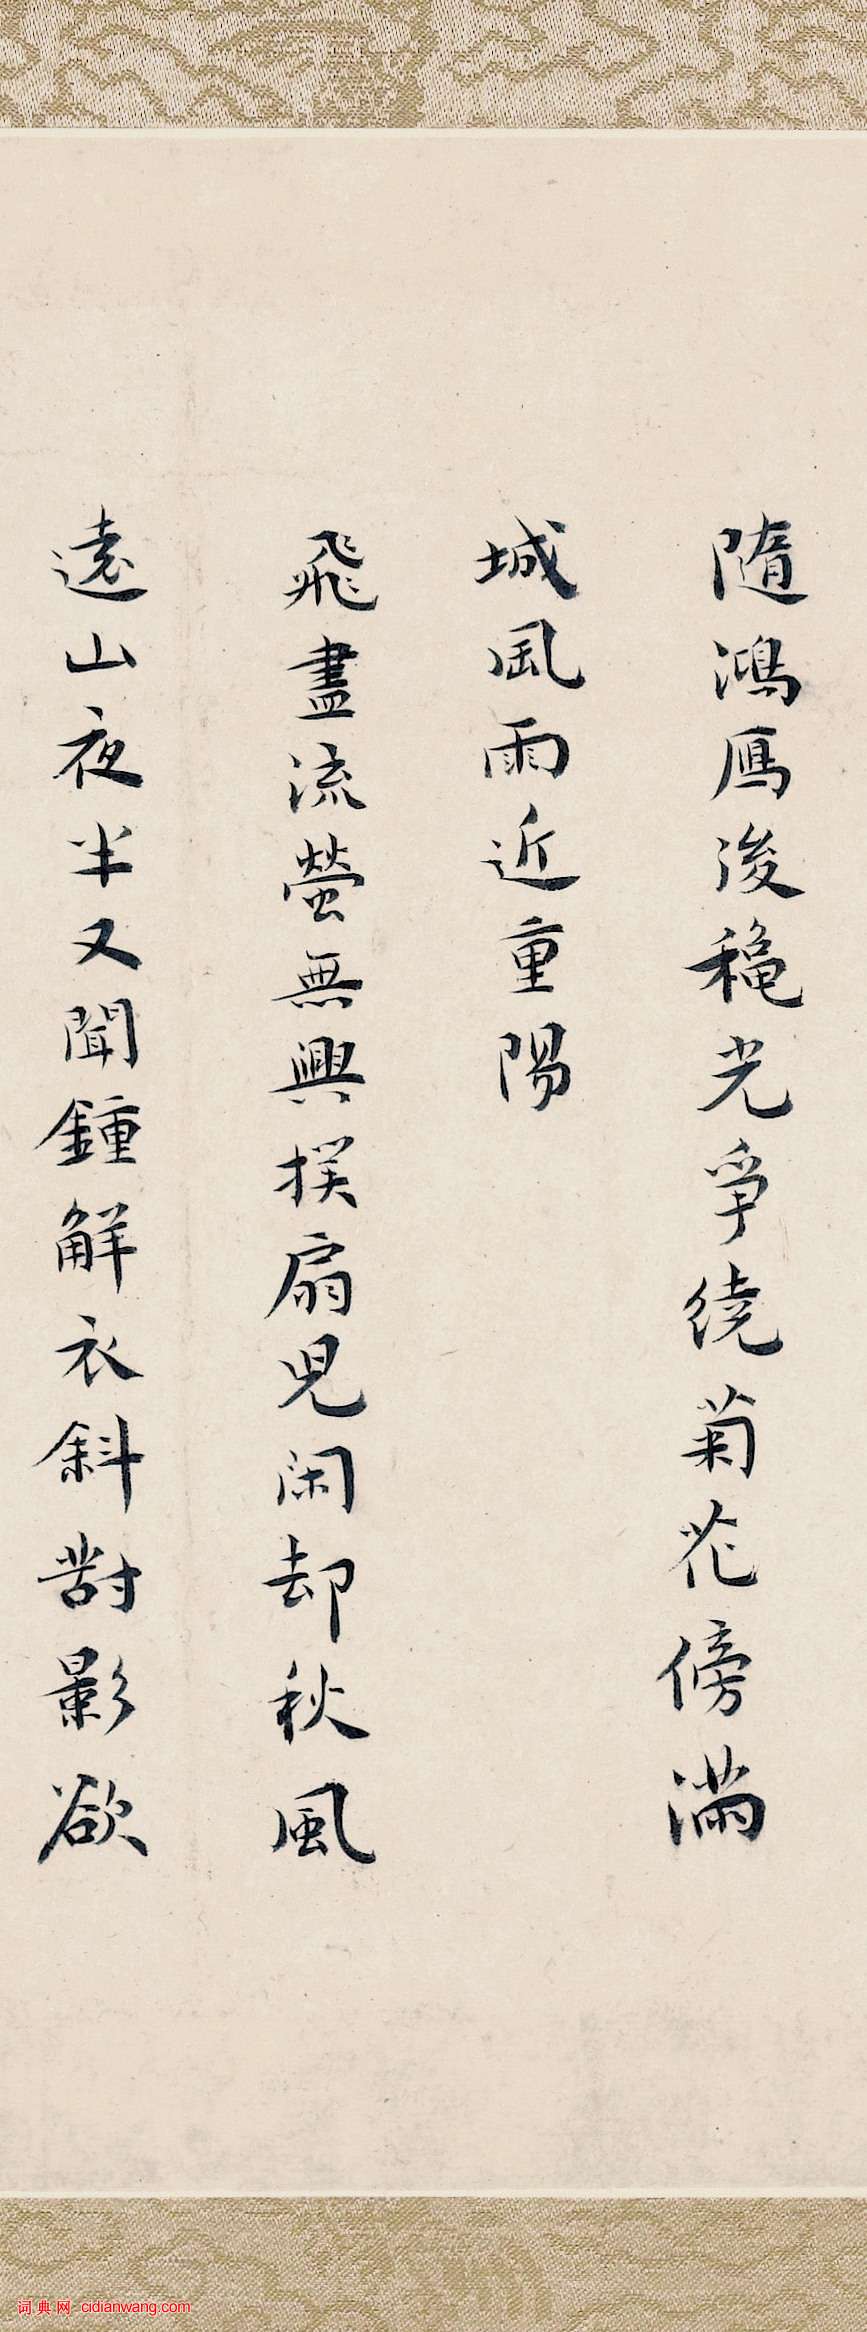 隨鴻鴈後穐光爭繞菊花傍滿
城風雨近重陽
飛盡流螢無興撲扇兒閑却秋風
遠山夜半又聞鍾解衣斜對影欲
词典网 cidianwang.com